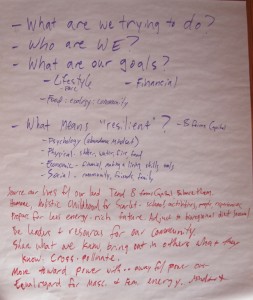 - What are we trying to do?
- Who are WE?
- What are our goals?
- Lifestyle - Financial
- Food: ecology: community
- What means "resilient"? - 8 Forms Capital
- Psychology (abundance mindset)
- Physical - shelter, water, fire, food
- Economic - earning a living, skills, tools
- Social - community, friends, family
Source our lives from our land. Tend 8 forms Capital Balance them.
Humane, holistic childhood for
Prepare for less energy-rich future. Adjust to
Be leaders & resources for our community.
Share what we know, bring out in others what they
know. Cross-pollinate.
Move toward power with... away from power over
Equal regard for masc. & fem. energy.